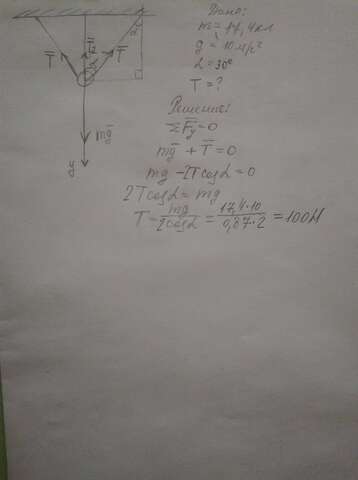 Дано:
m = 17,4 кг
g = 10 м/с²
α = 30°
T = ?
Решение:
ΣF̅y = 0
mg̅ + T̅ = 0
mg − 2T cos α = 0
2T cos α = mg
T = mg / 2cos α = 17,4·10 / 0,87·2 = 100 Н
T̅
T̅
α
α
mg̅
y